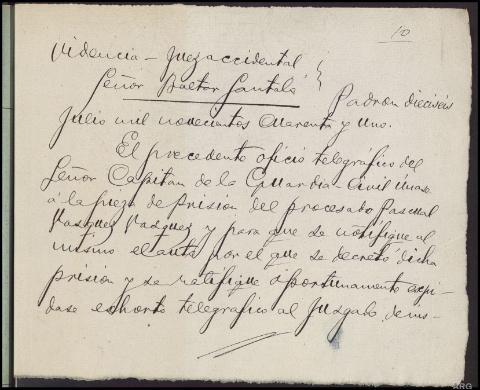 10
videncia - Juez accidental
Señor Baltar Santaló
Padron dieciseis
Julio mil novecientos cuarenta y uno.
El precedente oficio telegráfico del
Señor Capitan de la Guardia Civil únase
á la pieza de prisión del procesado Pascual
Vazquez Vazquez y para que se notifique al
mismo el auto por el que se decretó dicha
prisión y se ratifique oportunamente expi-
dase exhorto telegráfico al Juzgado de ins-
ARG